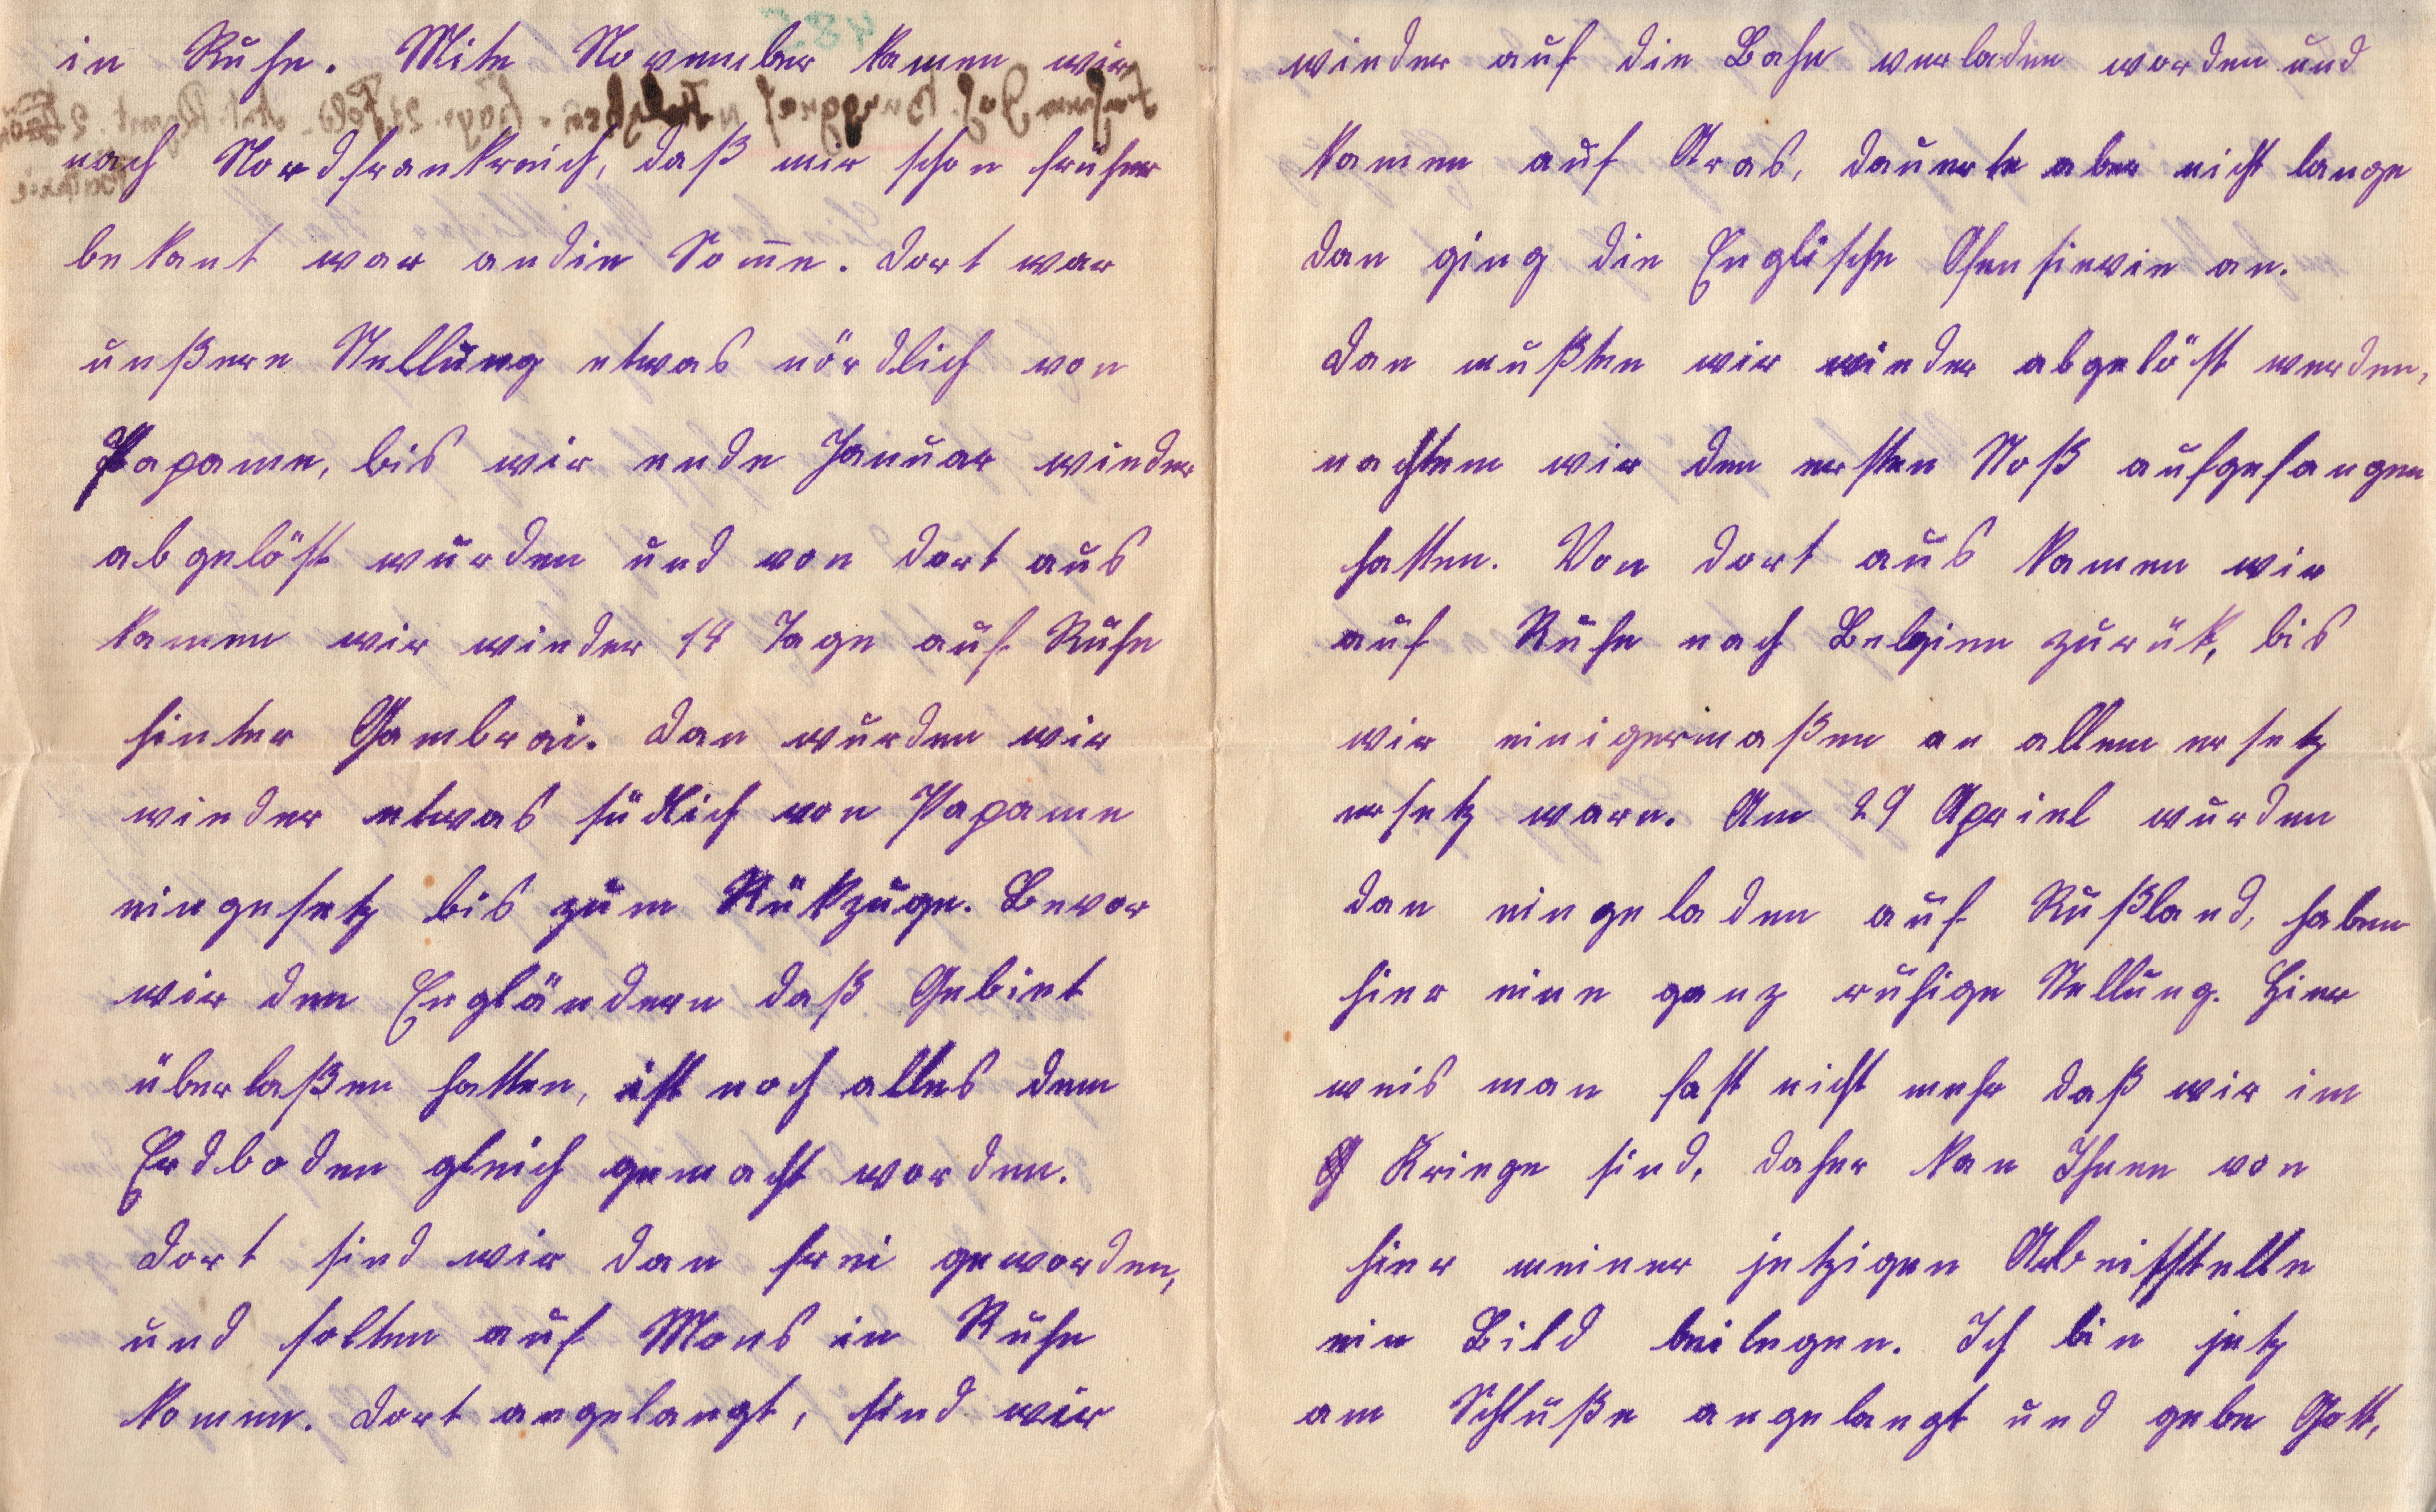 in Ruhe. Mite November kamen wir
nach Nordfrankreich, daß mir schon früher
bekant war andie Somme. Dort war
unßere Stellung etwas nördlich von
Papame, bis wir ende Januar wieder
abgelöst wurden und von dort aus
kamen wir wieder 14 Tage auf Ruhe
hinter Cambrai. Dan wurden wir
wieder etwas südlich von Papame
eingesetz bis zum Rükzuge. Bevor
wir den Engländern daß Gebiet
überlaßen hatten, ist noch alles dem
Erdboden gleich gemacht worden.
Dort sind wir dan frei geworden,
und solten auf Mons in Ruhe
komen. Dort angelangt, sind wir
wieder auf die Bahn verladen worden und
kamen auf Aras, dauerte aber nicht lange
dan ging die Englische Ofensievie an.
Dan mußten wir wieder abgelöst werden,
nachtem wir den ersten Stoß aufgefangen
hatten. Von dort aus kamen wir
auf Ruhe nach Belgien zurük, bis
wir einigermaßen an allem ersetz
ersetz ware. Am 29 Apriel wurden
dan eingeladen auf Rußland, haben
hier eine ganz ruhige Stellung. Hier
weis man fast nicht mehr daß wir im
Kriege sind, daher kan Ihnen von
hier meiner jetzigen Arbeitsstelle
ein Bild beilegen. Ich bin jetz
am Schluße angelangt und gebe Gott,